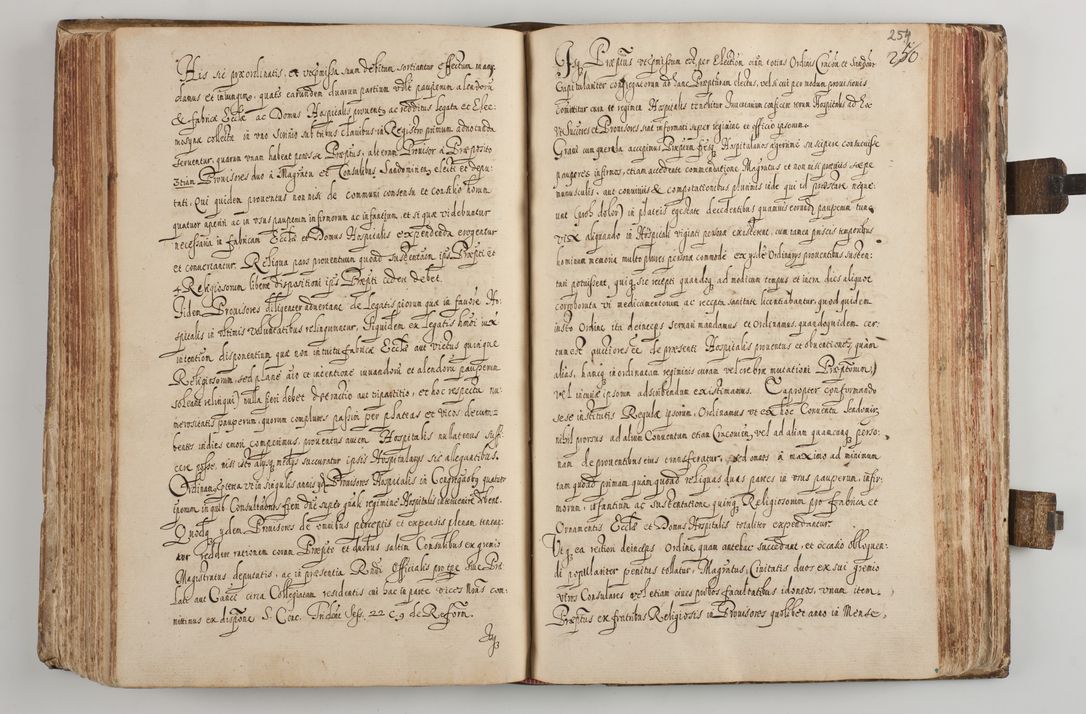 His sic praeordinatis, et vt praemissa suum debitum sortiantur effectum manp
damus et iniungim9, quatēs earundem duarum partium vdlt pauperum alendorū
& fabricæ Ecclæ ac Domus Hospitalis prouent9 ac redditus legata et Elee=
mosyna collecta in vno scrinio sub trinus clauibus in Registro primum adnotanda
seruentur, quarum vnam habeat penes se Præptus, alteram Prouisor a Præposito
Prouisores duo à Magrātu et Consulibus Sandomirien electi et depu=
tati. Qui quidem prouentus non nisi de communi consensu et consilio horum
quatuor aperiri ac in vsus pauperum infirmorum ac infantium, et si quæ videbuntur
necessaria in fabricam Ecclæ et Domus Hospitalis expendenda erogentur
et conuertantur. Reliqua pars prouentuum quoad sustentaōm ipsi Præpti et
4 Religiosorum liberæ dispositioni ipsi Præpti cedere debet.
Iidem Prouisores diligenter aduertant de Legatis piorum quæ in fauorē Ho=
spitalis in vltimis voluntatibus relinquuntur, Siquidem ex Legatis hmōi iux
intentiōm disponentium quæ non intuitu fabricæ Ecclæ aut victus quinque
Religiosorum, sed planè aīo et intentione iuuandorū et alendorū pauperum
solent relinqui) nulla fieri debet detractio aut dipartitio, et hoc respectu nu=
merositatis pauperum, quorum complures passim per plateas et vicos decum=
bentes indies emori comperimus, prouentus autem Hospitalis nullatenus suffi=
cere posse, nisi isto aliisq medijs succuratur ipsis Hospitalarijs sic allegantibus.
Ordinam9 præterea vt in singulis annis ijdē Prouisores Hospitalis in Congregaōbq quatuor
iporum in quib Consultatōnes fient dnē super quali regimine Hospitalis interuenire debent.
Quodq ijdem Prouisores de omnibus perceptis et expensis plenam tenean=
tur reddere rationem coram Præpto et duobus saltim Consulibus ex gremio
Magistratus deputatis, ac in præsentia Rndi Officialis pro tpe siue Præ=
lati aut Canci circa Collegiatam residentis cui hac in parte vices Nrās com=
mittimus ex dispone S. Conc. Tridēni Sess. 22 c. 9 de Reform.
Isq
254
250
Isq Præptus vt præmissum est, per Electiōm olim totius Ordinis Crucin et Sandomr
Capitulariter congregatorum ad hanc Præpturam electus, vel sicut per modum prouisionis
committitur cum re regimen Hospitalis tenebitur Inuentarium conficere rerum Hospitalis ad
vt Sucōres et Prouisores sint informati super regimine et officio ipsorum.
Graui cum querela accepimus Præptum eiusq Hospitalarios ægerrime suscipere consueuisse
pauperes infirmos, etiam accedente commendatione Magrātus et non nisi præuijs sæpe
munusculis, aut conuiuijs & compotationibus plurimis vnde qui id præstare neque=
unt (proh dolor) in plateis egestate decedentibus quamuis eorūdē pauperum tunc
vix aliquando in Hospitali viginti personæ existerent, cum tamen priscis temporibus
hominum memoria multo plures personæ commode ex ijsdē Ordinarijs prouentibus susten=
tari potuissent, quiq sic recepti quandoq ad modicum tempus et intra dies aliquot
corroborata vi medicamentorum ac recepta sanitate licentiabantur, quod quidem
insto Ordine ita deinceps seruari mandamus et Ordinamus, quandoquidem cer=
tum est auctiores eē de præsenti Hospitalis prouentus et obuentiones, quàm
alias, hancq inordinatam regiminis curam vel crebræ mutationi Præptorum)
vel incuriæ ipsorum adscribendum existimamus. Eapropter conformando
sese institutis Regulæ ipsorum, Ordinamus vt ex hoc Conuentu Sendomir,
nihil prorsus ad alium Conuentum etiam Cracouien, vel ad aliam quamcunq perso=
nam de prouentibus eius transferatur, sed omnes à maximo ad minimum
tam quoad primam quam quoad reliquas duas partes in vsus pauperum, infir=
morum, infantium ac sustentatione quinq Religiosorum pro fabrica et
Ornamentis Ecclæ et Domus Hospitalis totaliter expendantur.
Vtq ea rectiori deinceps Ordine, quam antehac succedant, et occasio obloquen=
di populariter penitus tollatur, Magrātus Ciuitatis duos ex sui gremio
viros Consulares vel etiam ciues possōres facultatibus idoneos, vnum item
Præptus ex fratribus Religiosis in Prouisores quolibet anno in Mense,